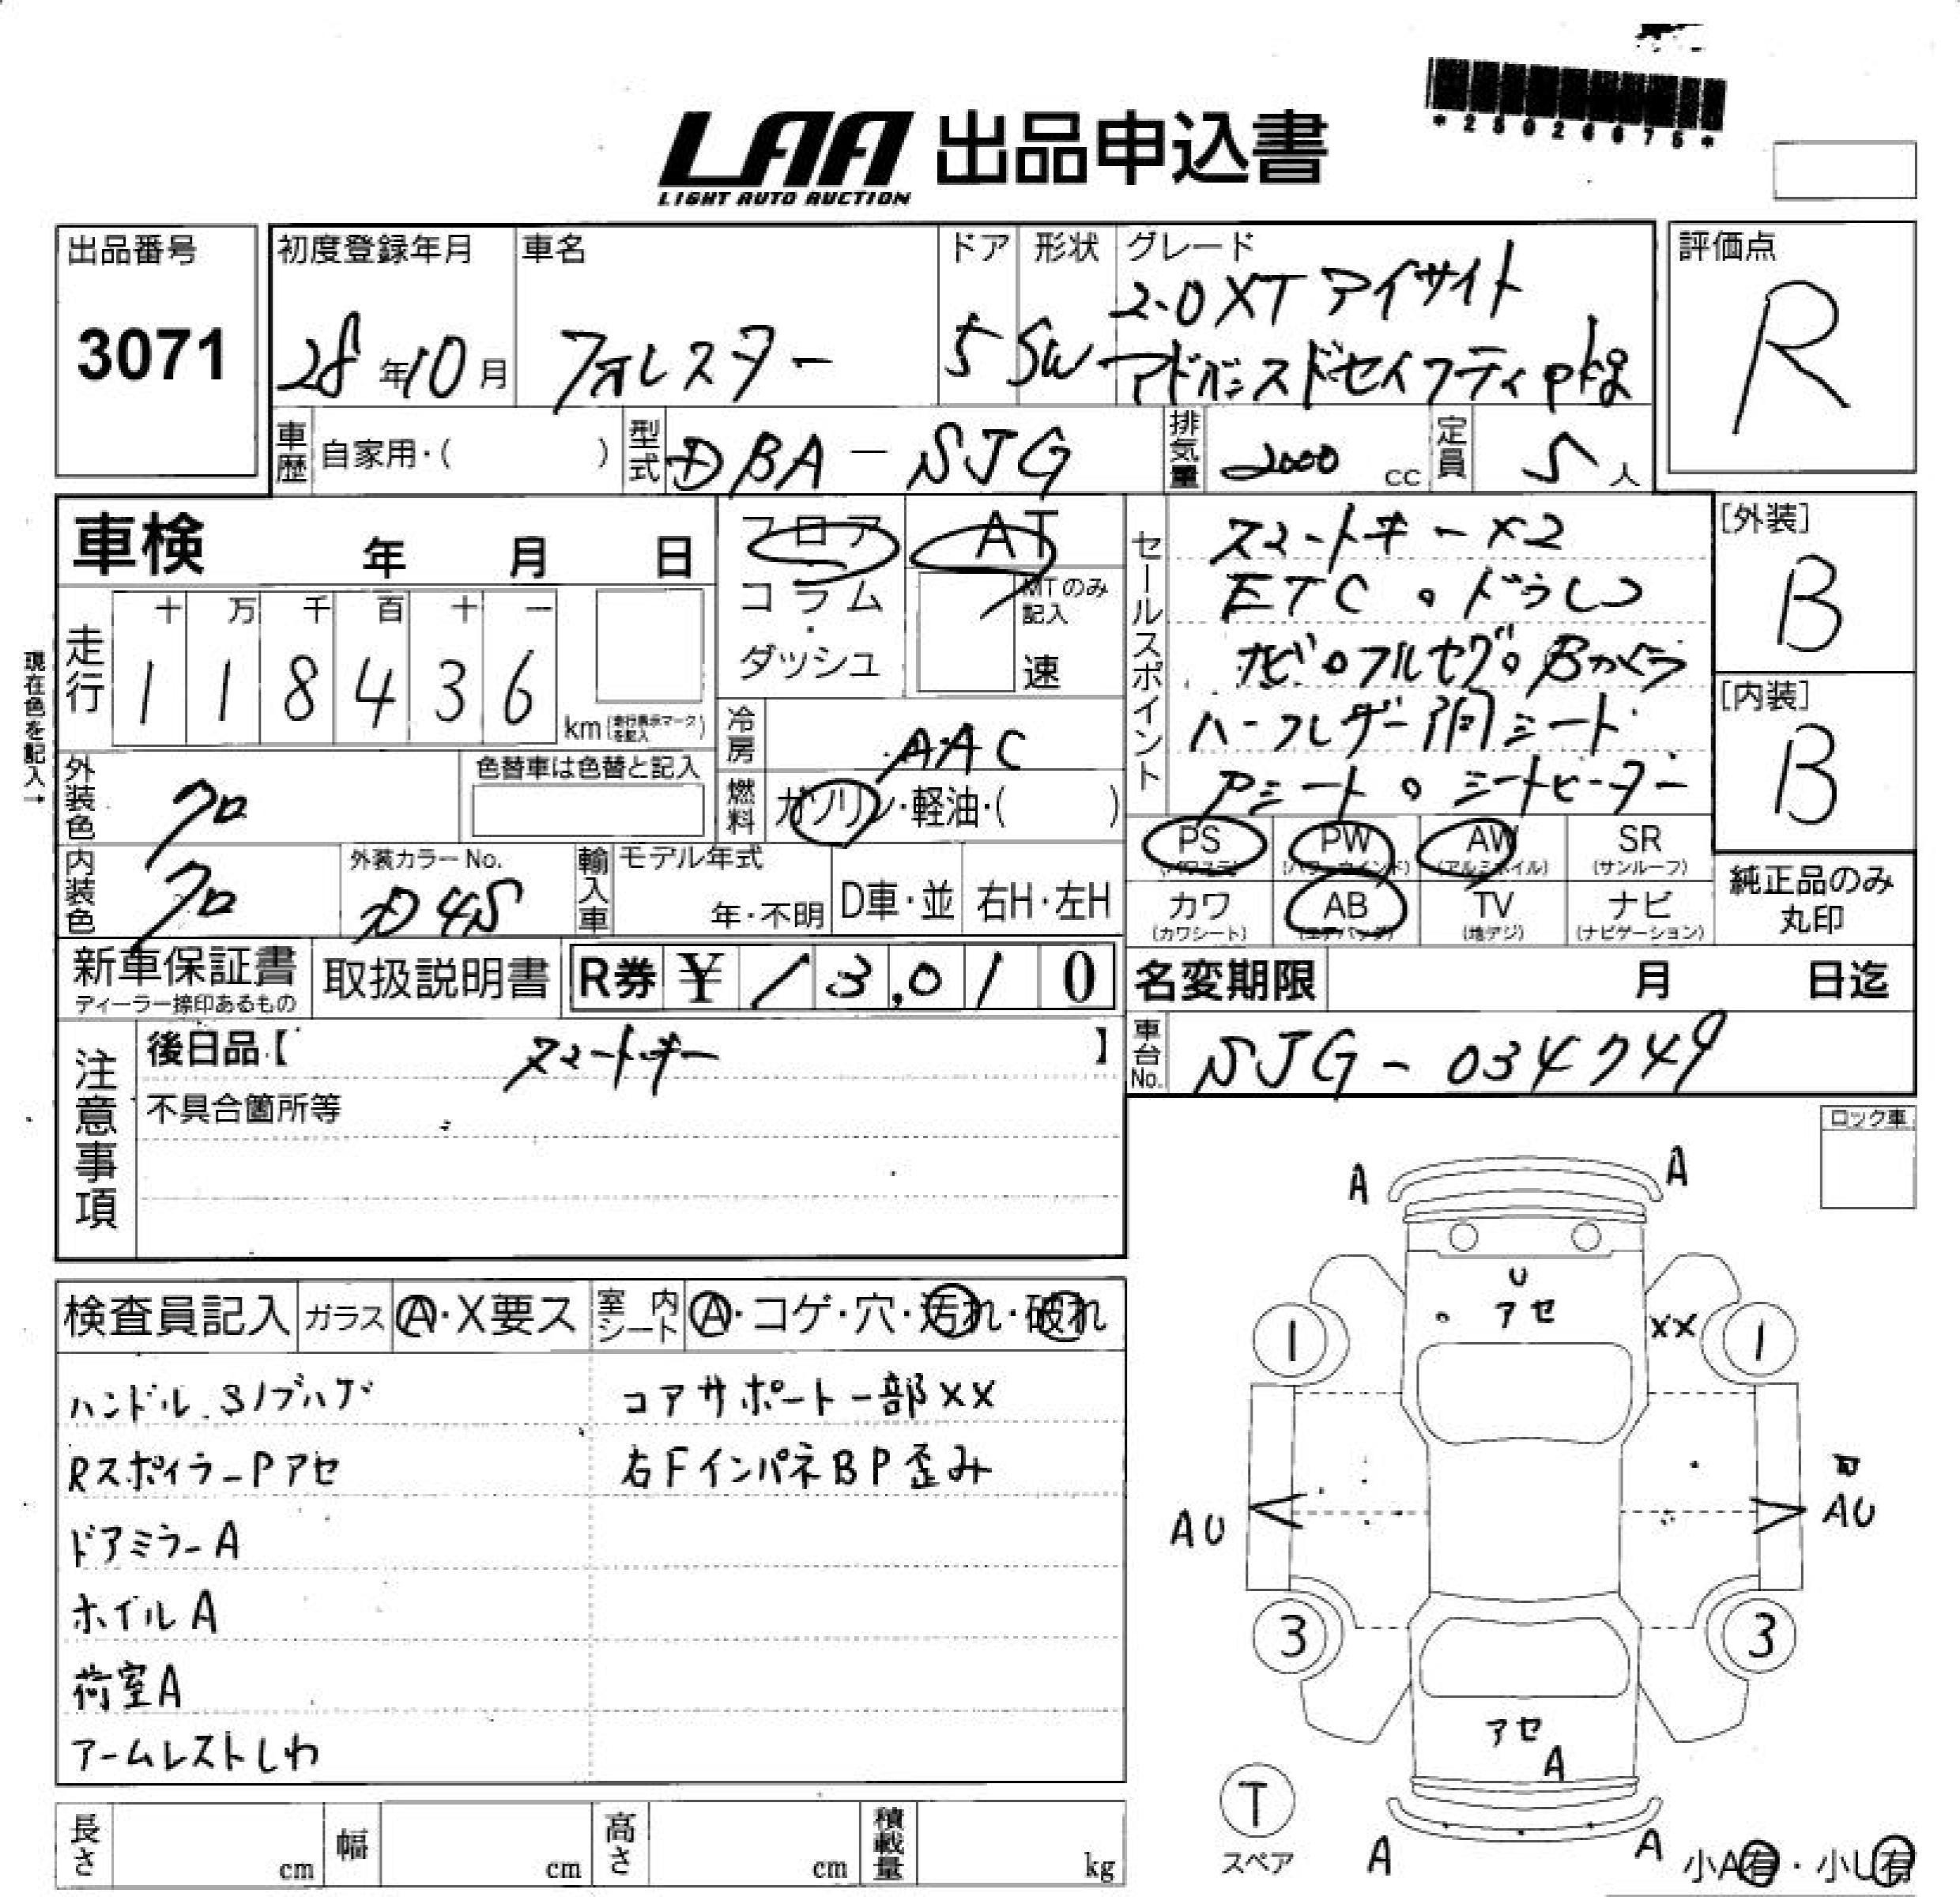 *25026675*
LAA 出品申込書
LIGHT AUTO AUCTION
出品番号
3071
初度登録年月
28年10月
車名
フォレスター
ドア
5
形状
SW
グレード
2.0XT アイサイト
アドバンスドセイフティpk
評価点
R
車歴 自家用・( )
型式 DBA-SJG
排気量 2000 cc
定員 5人
車検 年 月 日
フロア
コラム
ダッシュ
AT
MTのみ記入
速
現在色を記入→
走行
十 万 千 百 十 一
1 1 8 4 3 6 km(走行表示マークを記入)
冷房 AAC
燃料 ガソリン・軽油・( )
外装色 クロ
色替車は色替と記入
内装色 クロ
外装カラーNo.
D4S
輸入車 モデル年式
年・不明
D車・並
右H・左H
セールスポイント
スマートキー×2
ETC。ドラレコ
ナビ。フルセグ。Bカメラ
ハーフレザー調シート
Pシート。シートヒーター
[外装]
B
[内装]
B
PS (パワステ)
PW (パワーウインド)
AW (アルミホイル)
SR (サンルーフ)
カワ (カワシート)
AB (エアバッグ)
TV (地デジ)
ナビ (ナビゲーション)
純正品のみ
丸印
新車保証書
ディーラー捺印あるもの
取扱説明書
R券 ¥13,010
名変期限 月 日迄
車台No. SJG-034749
注意事項
後日品【 スマートキー 】
不具合箇所等
ロック車
検査員記入
ガラス A・X要ス
室内シート A・コゲ・穴・汚れ・破れ
ハンドル.Sノブハゲ
RスポイラーPアセ
ドアミラーA
ホイルA
荷室A
アームレストしわ
コアサポート一部××
右FインパネBP歪み
A
A
U
アセ
××
1
1
AU
AU
3
3
アセ
A
T
スペア
A
A
小A有・小U有
長さ cm
幅 cm
高さ cm
積載量 kg